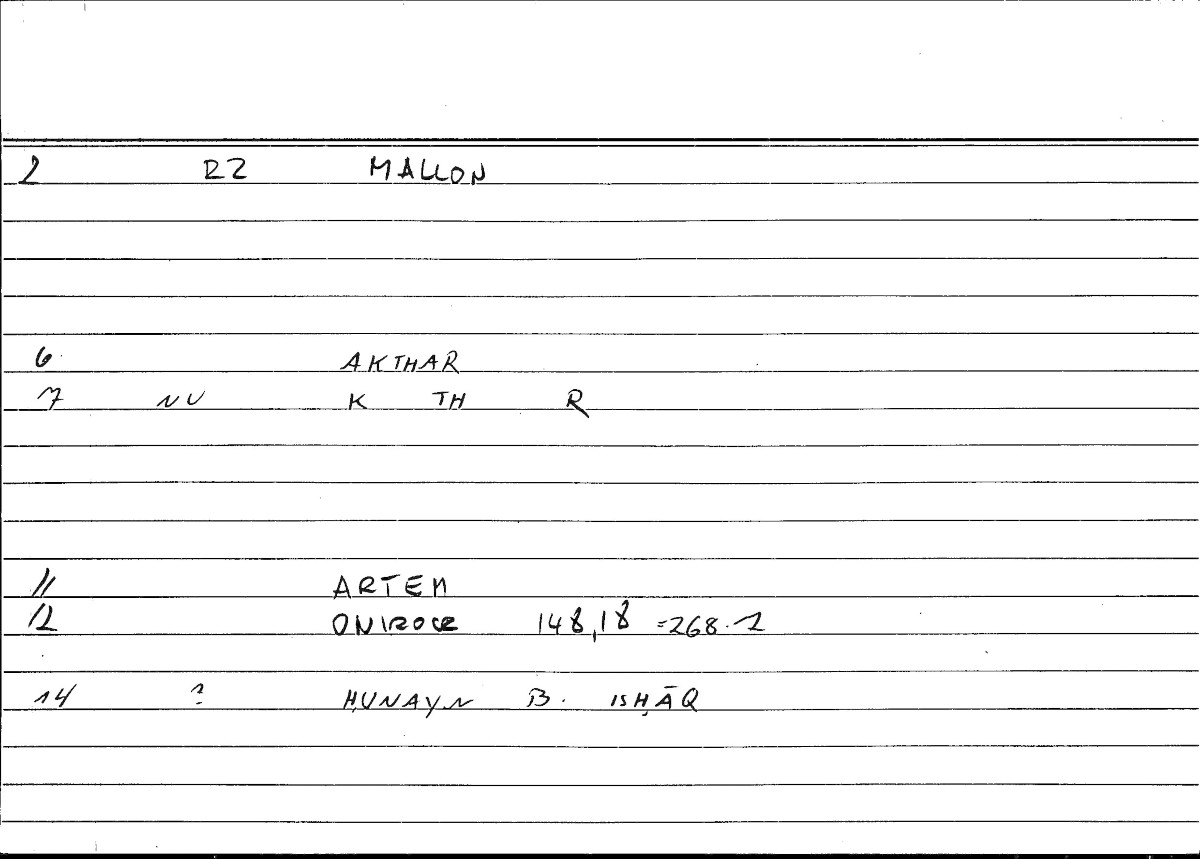 2 RZ MALLON
6 AKTHAR
7 NV K TH R
11 ARTEM
12 ONIROCR 148,18 =268.1
14 ? ḤUNAYN B. ISḤĀQ